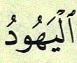 ٱلْيَهُودُ